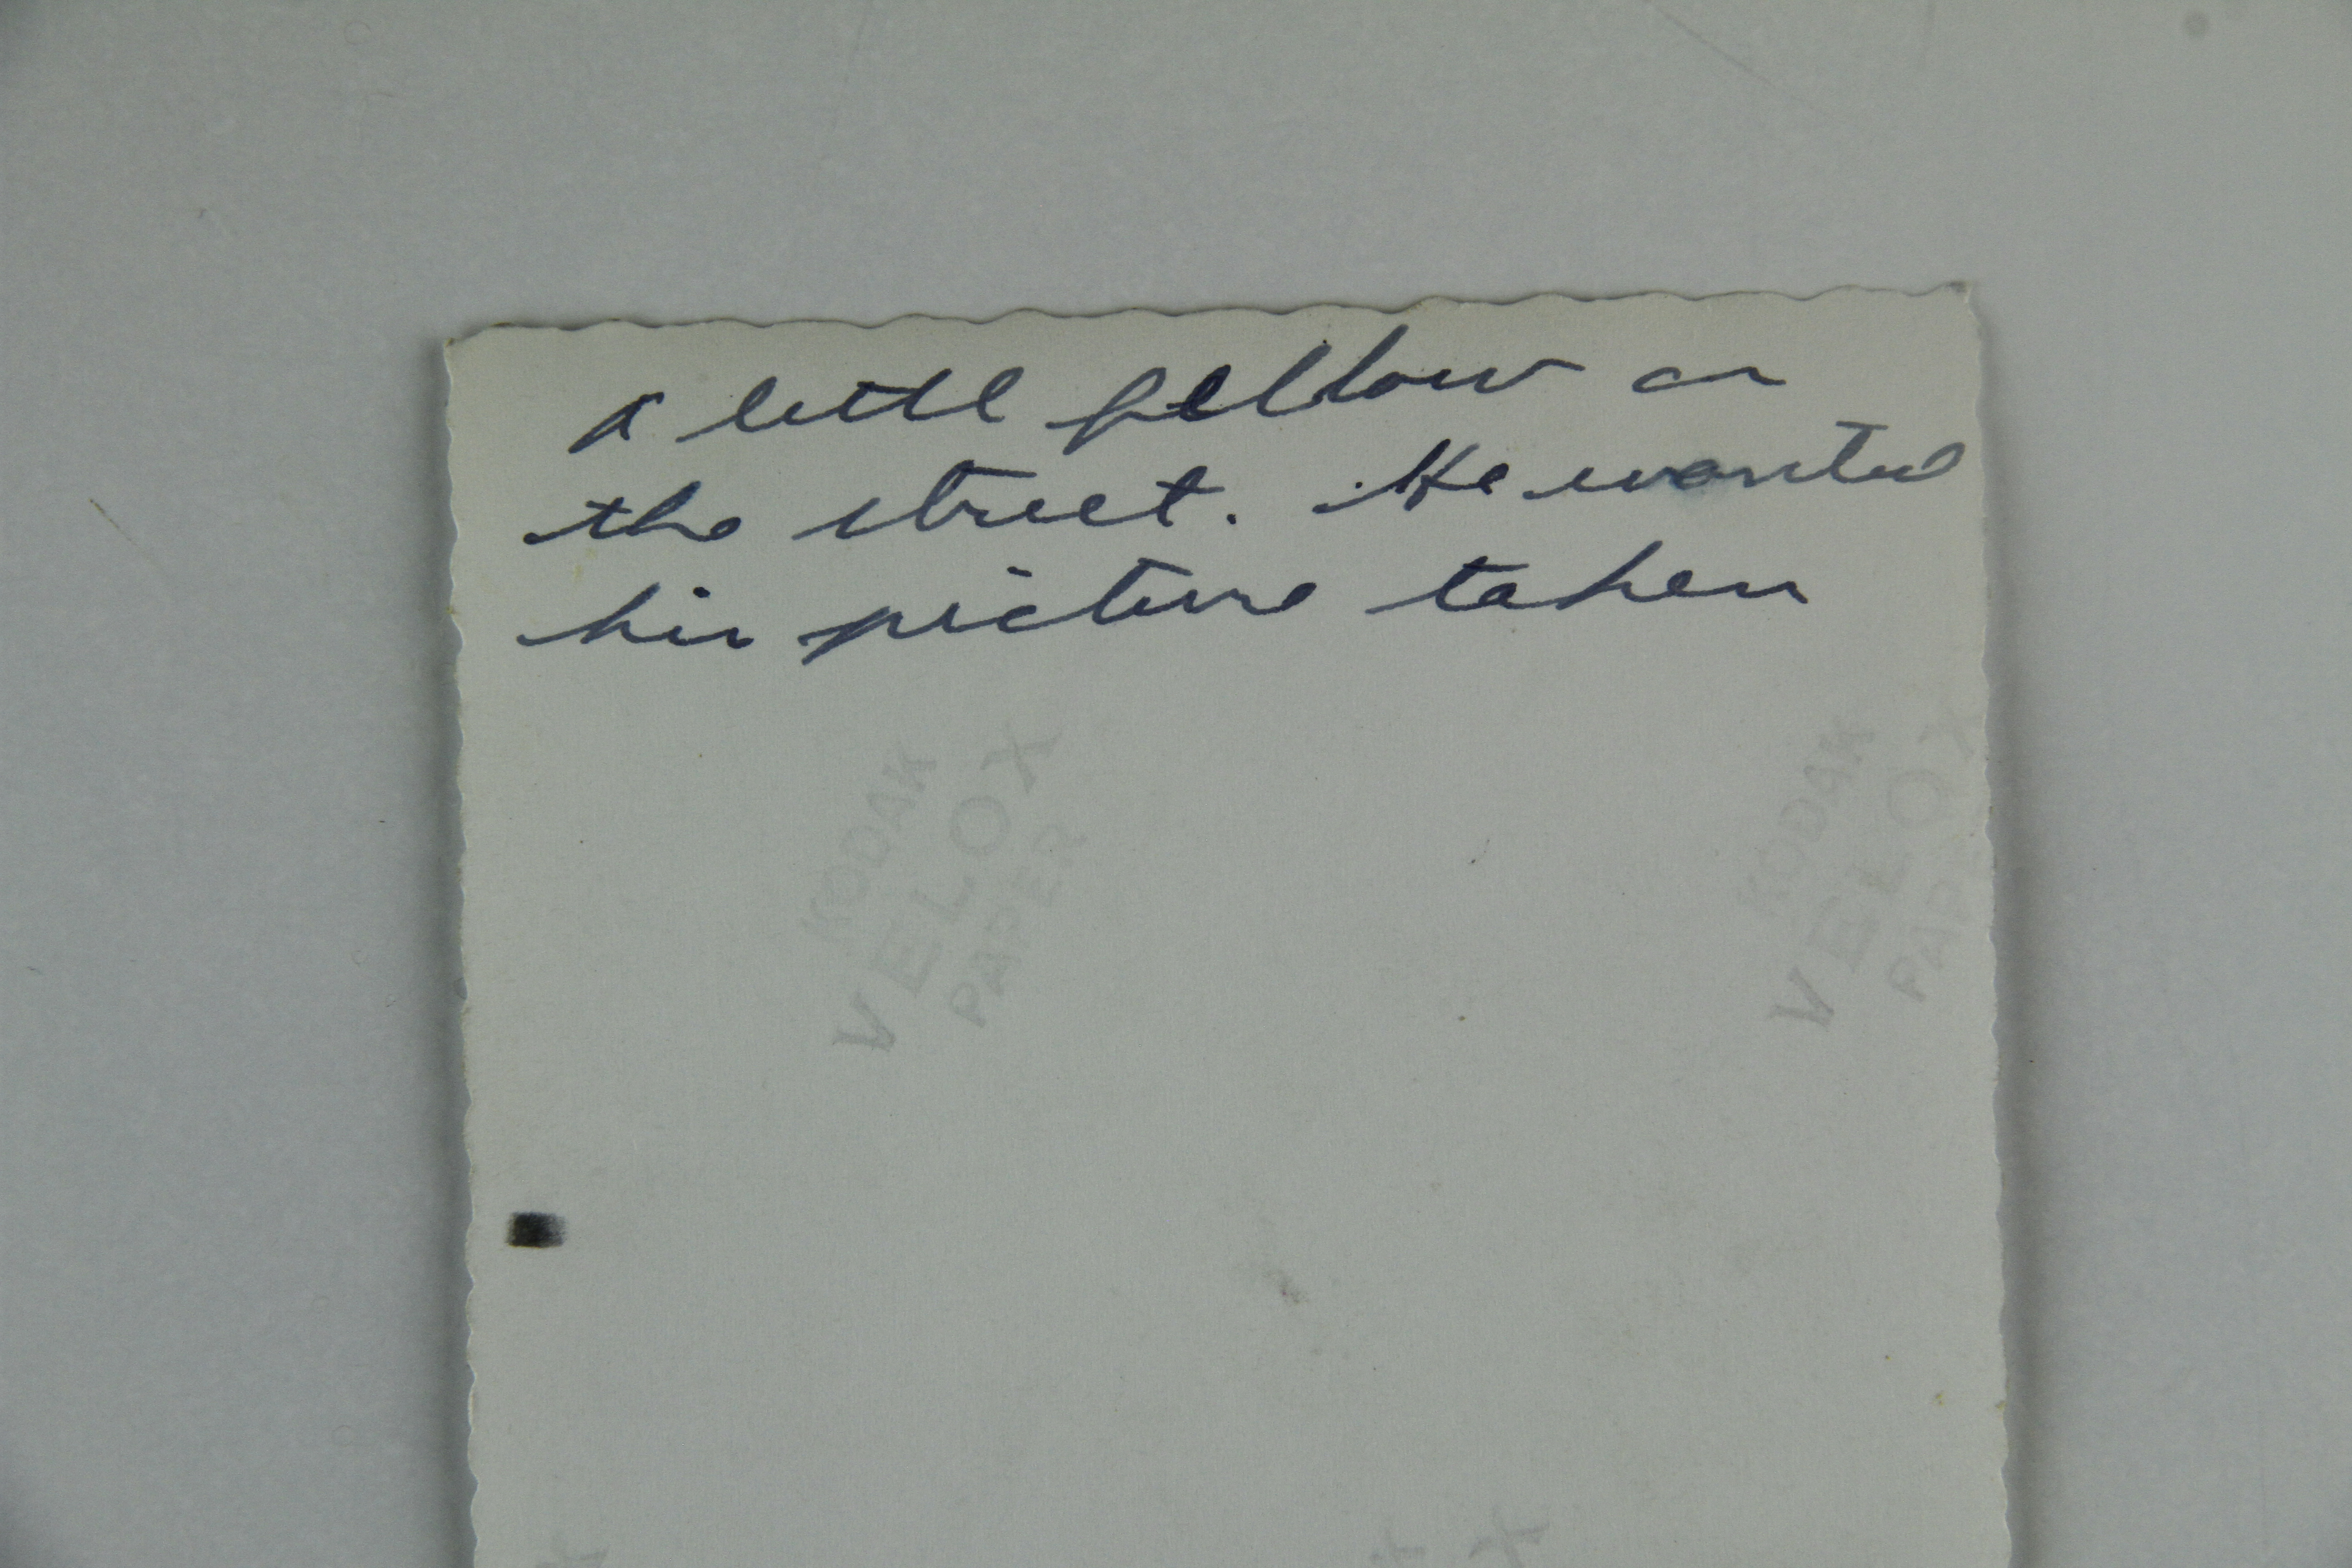 A little fellow on
the street. He wanted
his picture taken
KODAK
VELOX
PAPER
KODAK
VELOX
PAP